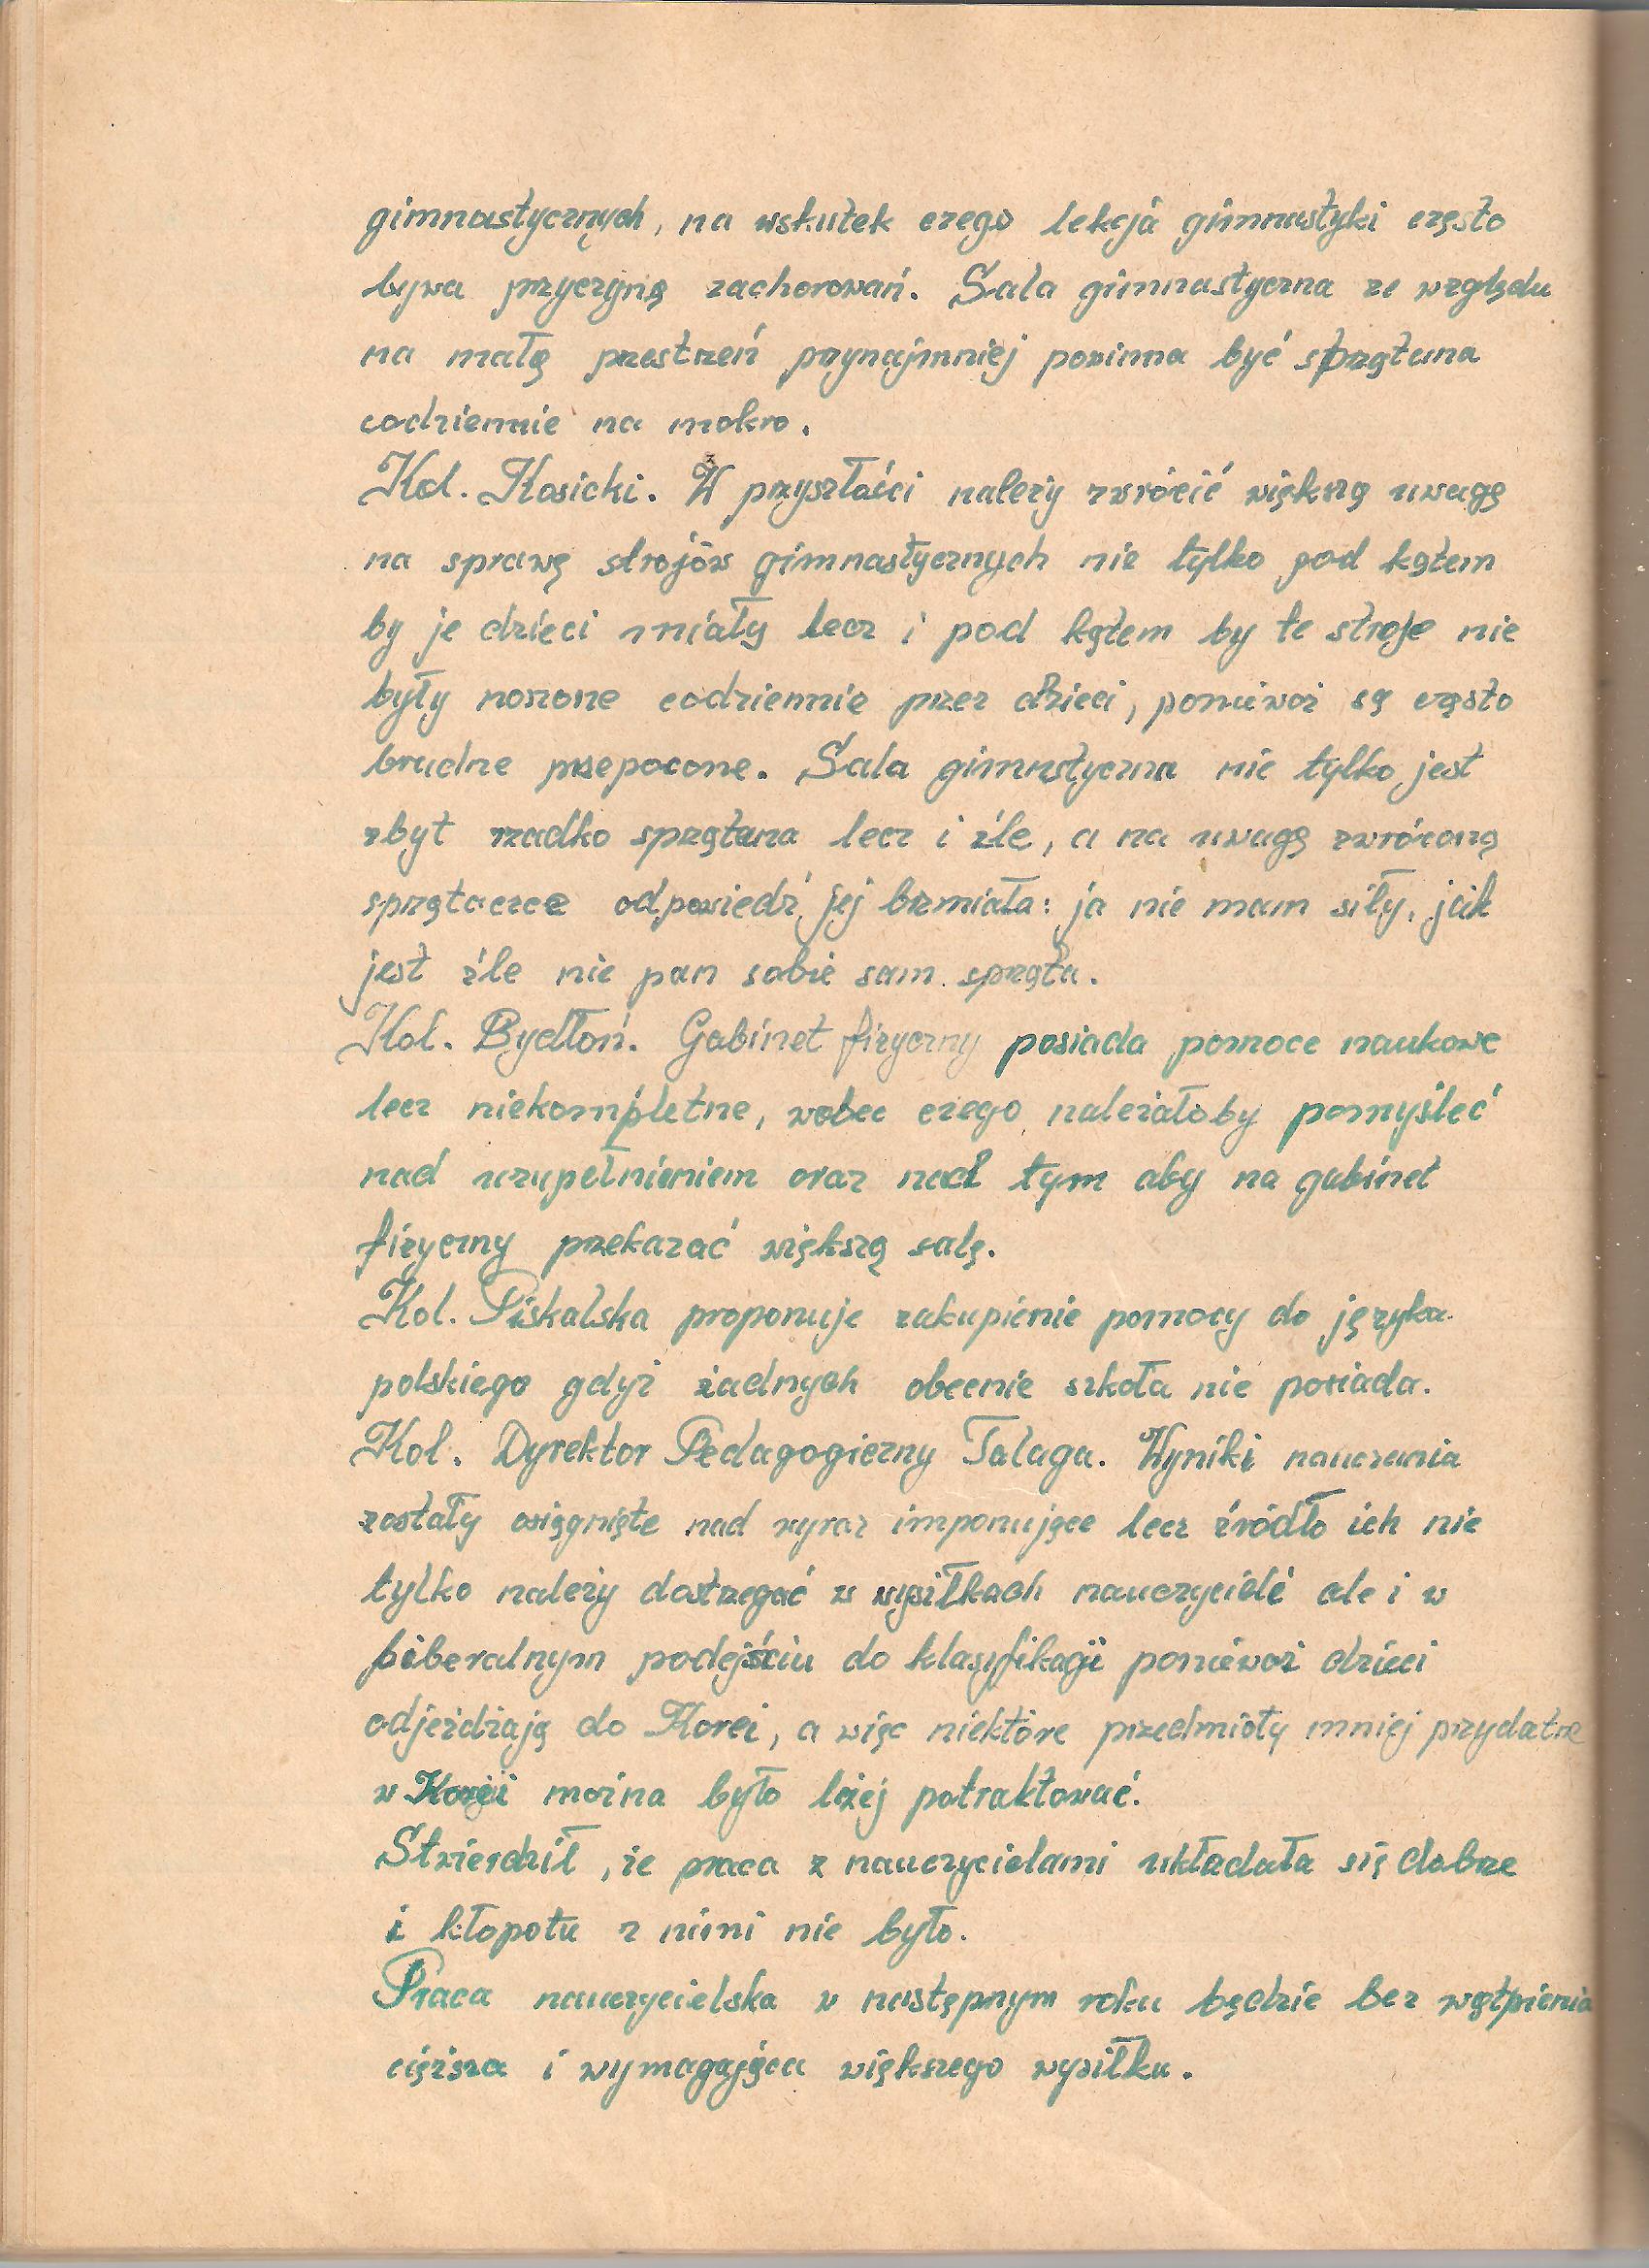 gimnastycznych, na wskutek czego lekcja gimnastyki często
bywa przyczyną zachorowań. Sala gimnastyczna ze względu
na małą przestrzeń przynajmniej powinna być sprzątana
codziennie na mokro.
Kol. Kosicki. W przyszłości należy zwrócić większą uwagę
na sprawę strojów gimnastycznych nie tylko pod kątem
by je dzieci miały lecz i pod kątem by te stroje nie
były noszone codziennie przez dzieci, ponieważ są często
brudne przepocone. Sala gimnstyczna nie tylko jest
zbyt rzadko sprzątana lecz i źle, a na uwagę zwróconą
sprzątaczce odpowiedź jej brzmiała: ja nie mam siły, jak
jest źle nie pan sobie sam sprząta.
Kol. Bydłoń. Gabinet fizyczny posiada pomoce naukowe
lecz niekompletne, wobec czego należałoby pomyśleć
nad uzupełnieniem oraz nad tym aby na gabinet
fizyczny przekazać większą salę.
Kol. Piskalska proponuje zakupienie pomocy do języka
polskiego gdyż żadnych obecnie szkoła nie posiada.
Kol. Dyrektor Pedagogiczny Talaga. Wyniki nauczania
zostały osiągnięte nad wyraz imponujące lecz źródło ich nie
tylko należy dostrzegać w wysiłkach nauczycieli ale i w
liberalnym podejściu do klasyfikacji ponieważ dzieci
odjeżdżają do Korei, a więc niektóre przedmioty mniej przydatne
w Korei można było lżej potraktować.
Stwierdził, że praca z nauczycielami układała się dobrze
i kłopotu z nimi nie było.
Praca nauczycielska w następnym roku będzie bez wątpienia
cięższa i wymagająca większego wysiłku.